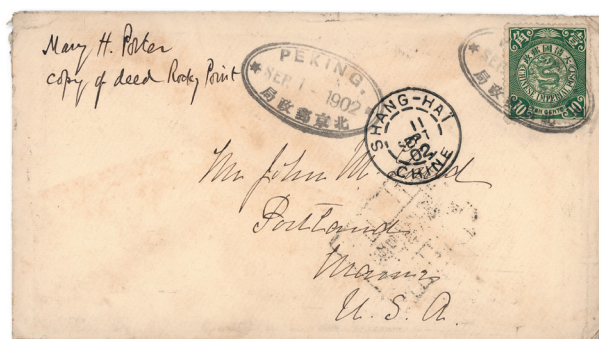 Mary H. Porter
copy of deed Rocky Point
PEKING.
SEP 1 - 1902
北京郵政局
SHANG-HAI
11
SEPT
02
CHINE
壹角
CHINESE IMPERIAL POST
10
Mr John M.
Portland
Maine
U.S.A.